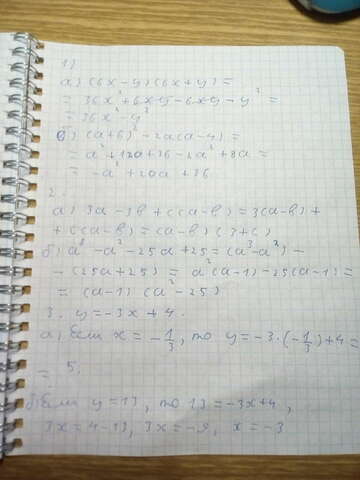 1)
а) (6x-y)(6x+y)=
= 36x²+6xy-6xy-y²=
= 36x²-y²
в) (a+6)²-2a(a-4)=
= a²+12a+36-2a²+8a=
= -a²+20a+36
2.
а) 3a-3b+c(a-b)=3(a-b)+
+c(a-b)=(a-b)(3+c)
б) a³-a²-25a+25=(a³-a²)-
-(25a+25)=a²(a-1)-25(a-1)=
= (a-1)(a²-25)
3. y=-3x+4.
а) Если x=-1/3, то y=-3·(-1/3)+4=
= 5.
б) Если y=13, то 13=-3x+4,
3x=4-13, 3x=-9, x=-3